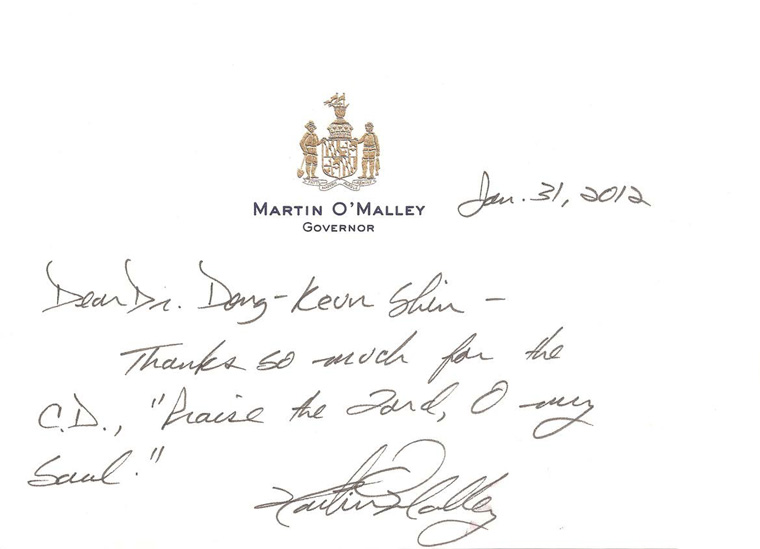 MARTIN O'MALLEY
GOVERNOR
Jan. 31, 2012
Dear Dr. Dong-Keun Shin –
Thanks so much for the
C.D., "Praise the Lord, O my
Soul."
Martin O'Malley